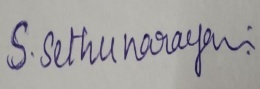 S. Sethunarayan: